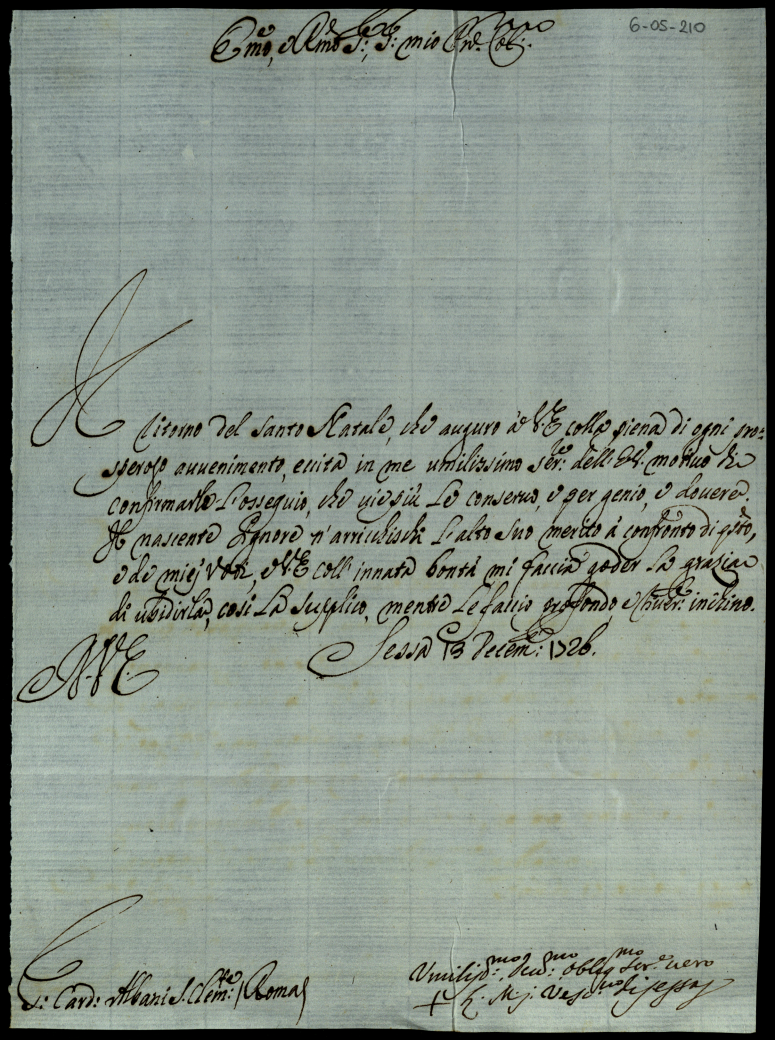 6-05-210
Emo, e Rmo Sr: Sr: mio Prōn: Col:mo
Il ritorno del Santo Natale, che auguro à V.E. colla piena di ogni pro=
speroso avvenimento, eccita in me umilissimo ser:e dell' E.V. motivo di
confirmarle l'ossequio, che vie più Le conservo, e per genio, e dovere.
Il nascente Signore n'arricchischi l'alto suo merito à confronto di qsto,
e de miej voti, e V.E. coll' innata bontà mi faccia goder la grazia
di ubidirla, così La supplico, mentre Le faccio profondo, e river:e inchino.
Sessa 13 Decem:e 1726.
D. V. E.
S:r Card: Albani S. Clem:te / Roma
Umiliss:mo, Dev:mo Oblig:mo Ser:e vero
+ F. M. Vesc:vo di Sessa